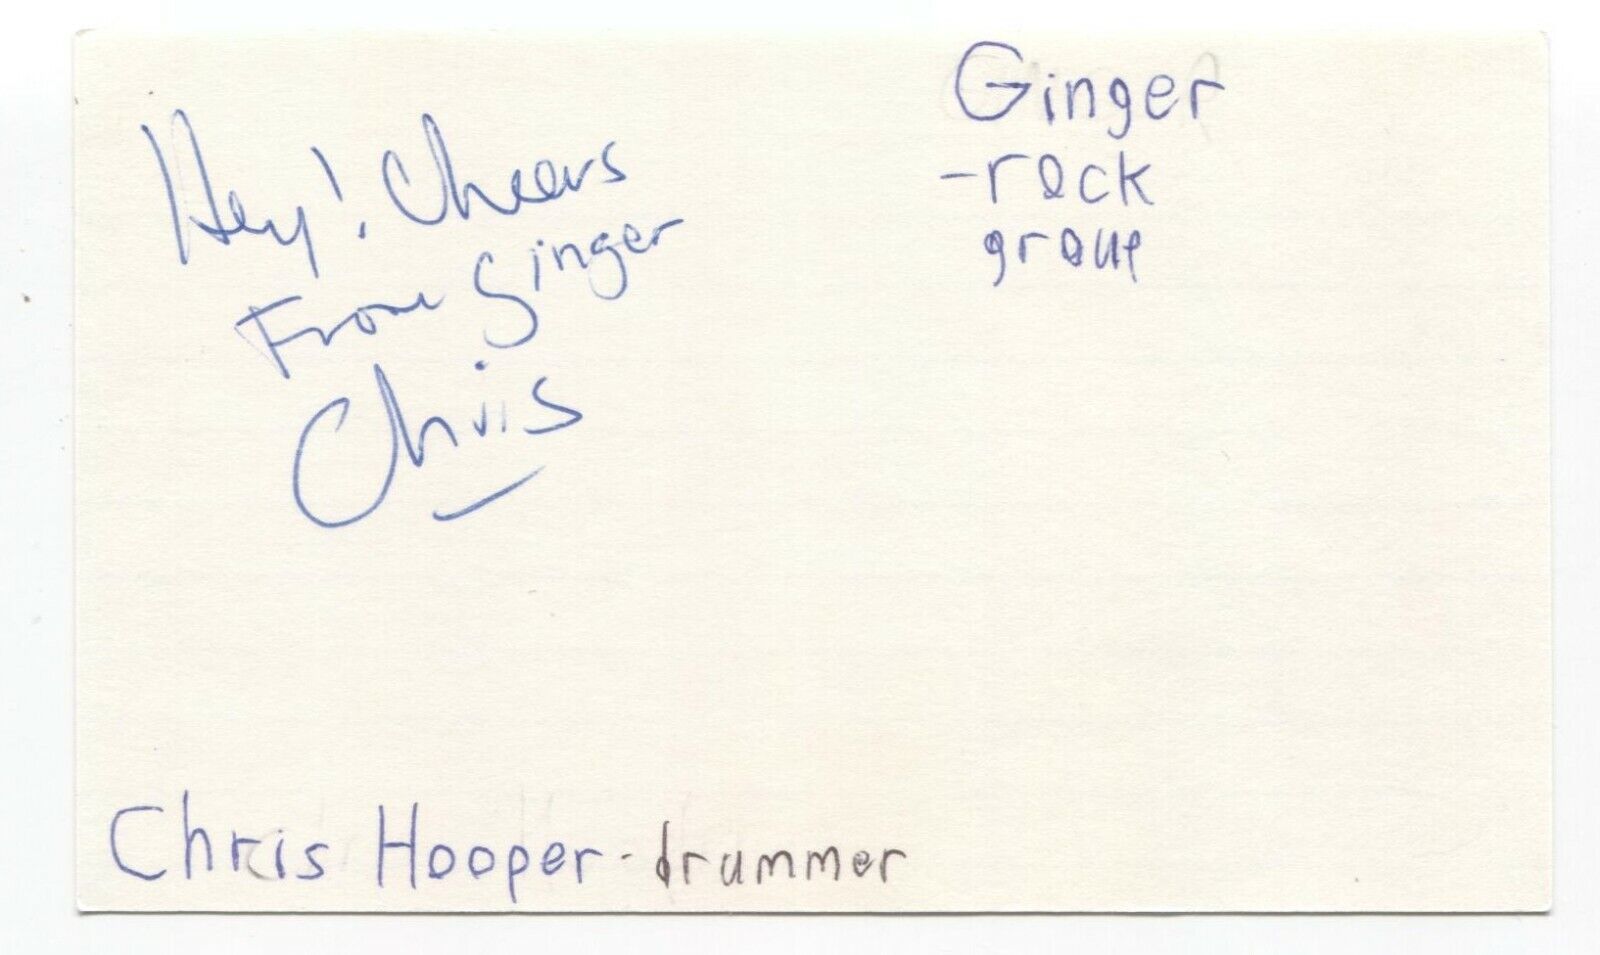 Hey! Cheers
From Ginger
Chris
Ginger
-rock
group
Chris Hooper-drummer